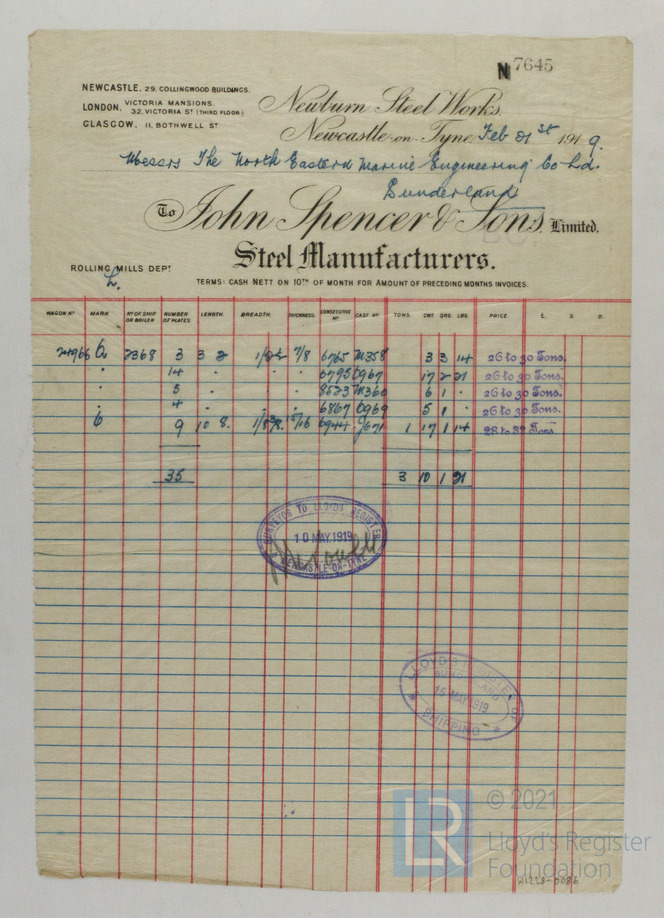 N 7645
NEWCASTLE. 29, COLLINGWOOD BUILDINGS.
LONDON, VICTORIA MANSIONS. 32, VICTORIA ST (THIRD FLOOR)
GLASGOW, 11, BOTHWELL ST
Newburn Steel Works,
Newcastle-on-Tyne, Feb 21st 1919.
Messrs The North Eastern Marine Engineering Co Ld.
Sunderland
To John Spencer & Sons, Limited.
Steel Manufacturers.
ROLLING MILLS DEPT
TERMS: CASH NETT ON 10TH OF MONTH FOR AMOUNT OF PRECEDING MONTHS INVOICES.
WAGON NO MARK NO OF SHIP OR BOILER NUMBER OF PLATES LENGTH. BREADTH. THICKNESS. CONSECUTIVE NO CAST NO TONS. CWT QRS. LBS. PRICE. £. S. D.
2368 3 3 2 7/8 6765 M358 3 3 14 26 to 30 Tons.
" 14 " 6795 O967 17 2 21 26 to 30 Tons.
" 5 " 8523 M360 6 1 " 26 to 30 Tons.
" 4 " 6867 O969 5 1 " 26 to 30 Tons.
9 10 8. 6944 J671 1 17 1 14 28 to 32 Tons.
35 3 10 1 21
SURVEYOR TO LLOYDS REGISTER
10 MAY.1919
NEWCASTLE-ON-TYNE
LLOYD'S REGISTER OF
SUNDERLAND
15 MAY 1919
SHIPPING
LR
© 2021
Lloyd's Register
Foundation
W1223-0086